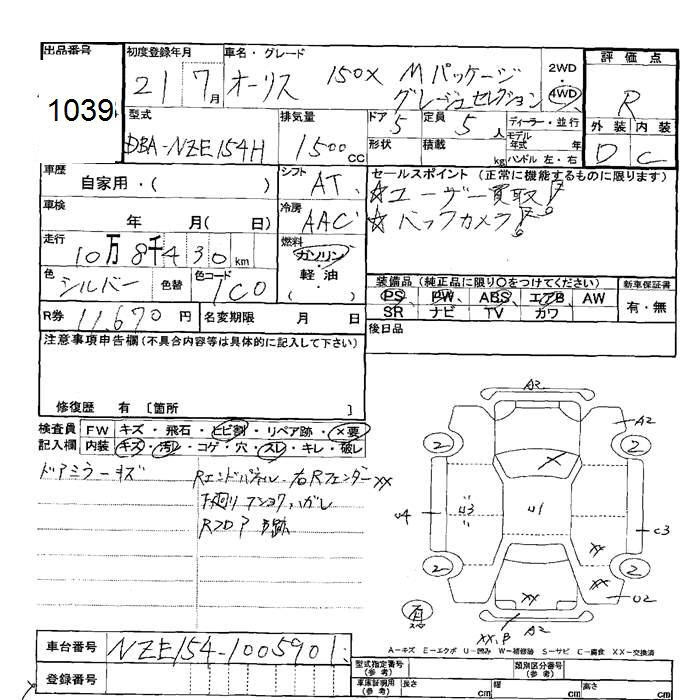 出品番号
1039
初度登録年月
21 7月
車名・グレード
オーリス 150X Mパッケージ
グレージュセレクション
2WD
・
4WD
評価点
R
外装 内装
D C
型式
DBA-NZE154H
排気量
1500cc
ドア 5
定員 5人
形状
積載 kg
ディーラー・並行
モデル年式 年
ハンドル 左・右
車歴
自家用・( )
シフト AT
セールスポイント (正常に機能するものに限ります)
☆ユーザー買取!
☆バックカメラ!
車検
年 月( 日)
冷房 AAC
走行
10万8千430km
燃料
ガソリン
・
軽油
( )
色 シルバー
色替
色コード 1C0
装備品(純正品に限り〇をつけてください)
PS PW、ABS、エアB、AW
SR ナビ TV カワ
新車保証書
有・無
R券 11,670円
名変期限 月 日
後日品
注意事項申告欄(不具合内容等は具体的に記入して下さい)
修復歴 有 〔箇所 〕
検査員記入欄
FW キズ・飛石・ヒビ割・リペア跡・×要
内装 キズ・汚レ・コゲ・穴・スレ・キレ・破レ
ドアミラーキズ
Rエンドパネル・右Rフェンダーxx
下廻リフショクハガレ
Rフロア
A2
A2
2
2
U4
U3
U1
C3
xx
xx
xx
2
2
U2
xx,B
A2
A-キズ E-エクボ U-凹み W-補修跡 S-サビ C-腐食 XX-交換済
車台番号
NZE154-1005901
登録番号
型式指定番号
(参考)
類別区分番号
(参考)
車庫証明用
(参考)
長さ cm
幅 cm
高さ cm